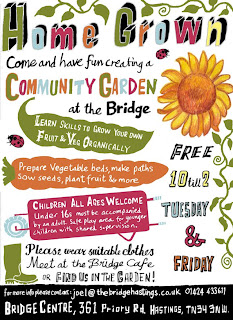 Home Grown
Come and have fun creating a
COMMUNITY GARDEN
at the Bridge
LEARN SKILLS TO GROW YOUR OWN
FRUIT & VEG ORGANICALLY
FREE
10 till 2
TUESDAY
&
FRIDAY
Prepare Vegetable beds, make paths
sow seeds, plant fruit & more
CHILDREN ALL AGES WELCOME
Under 16s must be accompanied
by an adult. Safe play area for younger
children with shared supervision.
Please wear suitable clothes
Meet at the Bridge Cafe
OR FIND US IN THE GARDEN!
for more info please contact: joel@thebridgehastings.co.uk 01424 433611
BRIDGE CENTRE, 361 Priory Rd, HASTINGS, TN34 3NW.